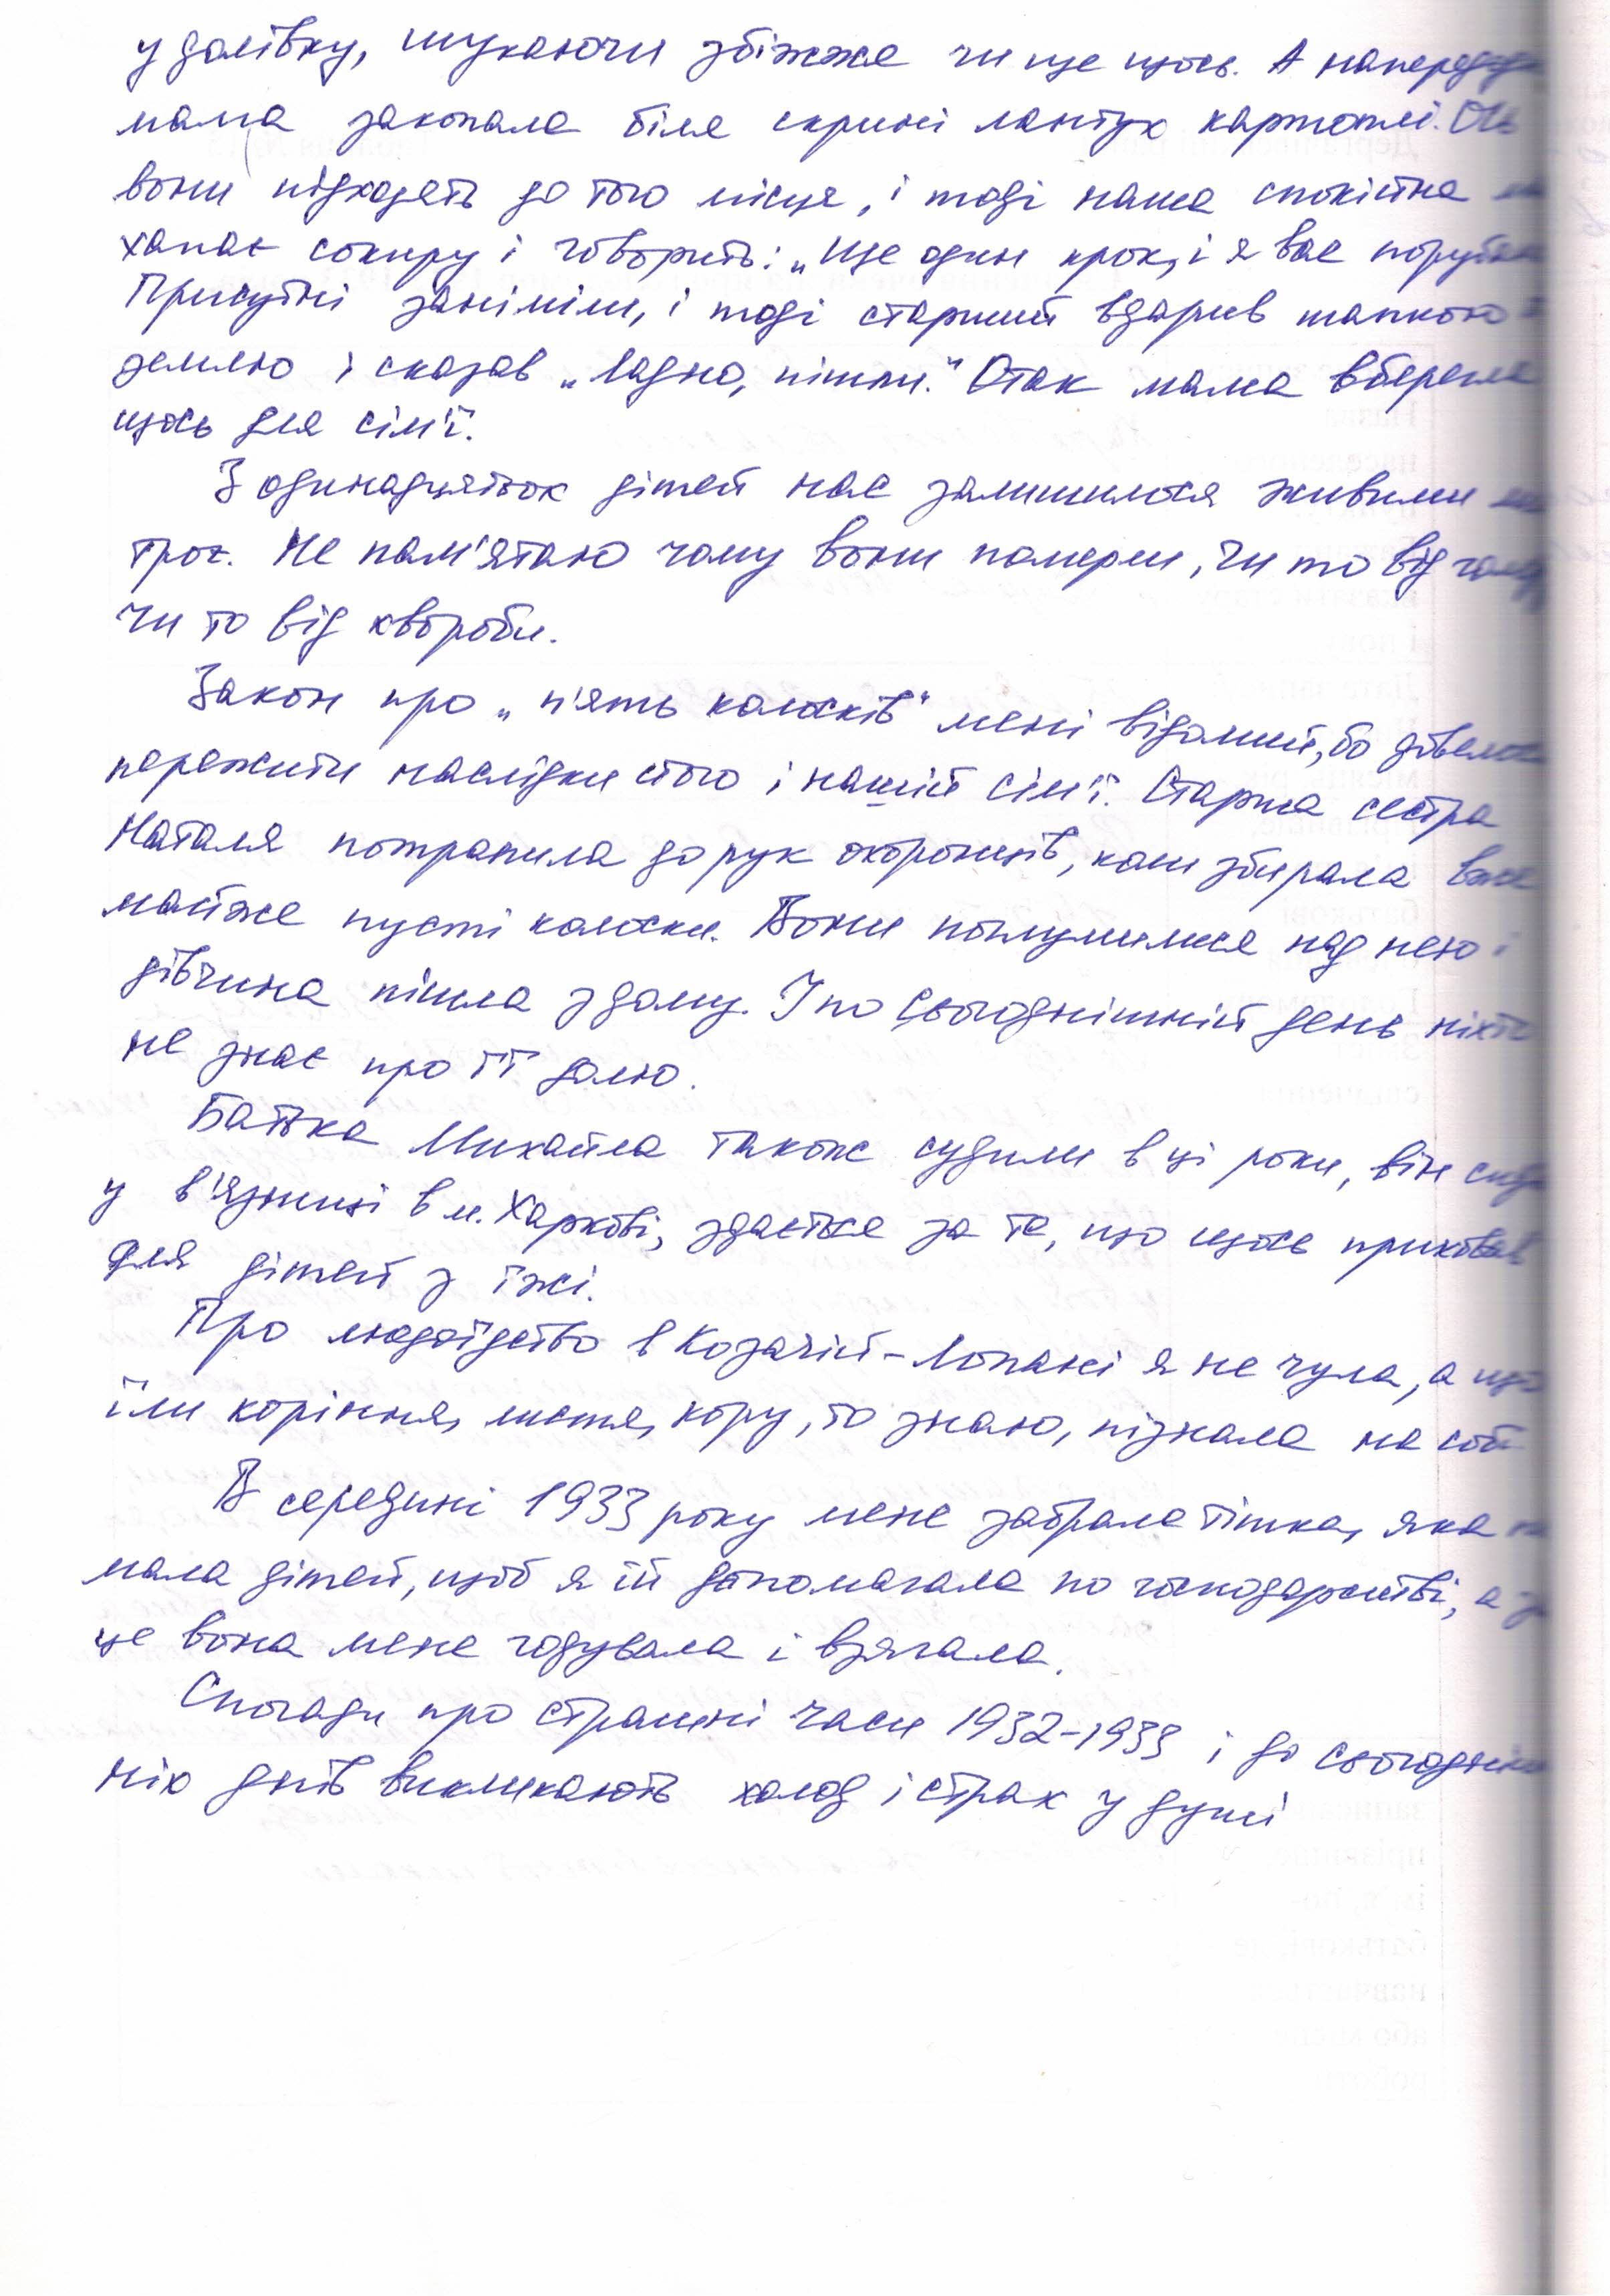 у долівку, шукаючи збіжжя чи ще щось. А напередодні
мама закопала біля скрині лантух картоплі. Ось
вони підходять до того місця, і тоді наша спокійна
хапає сокиру і говорить: „Ще один крок, і я вас порубаю
Присутні заніміли, і тоді старший вдарив шапкою
землю і сказав „Ладно, пішли." Отак мама вберегла
щось для сім'ї.
З одинадцятьох дітей нас залишилося живими
троє. Не пам'ятаю чому вони померли, чи то від голоду
чи то від хвороби.
Закон про „п'ять колосків" мені відомий, бо довелося
пережити наслідки його і нашій сім'ї. Старша сестра
Наталя потрапила до рук охоронців, коли збирала вже
майже пусті колоски. Вони поглумилися над нею і
дівчина пішла з дому. І по сьогоднішній день ніхто
не знає про її долю.
Батька Михайла також судили в ці роки, він сидів
у в'язниці в м. Харкові, здається за те, що щось приховав
для дітей з їжі.
Про людоїдство в Козачій-Лопані я не чула, а що
їли коріння, листя, кору, то знаю, пізнала на собі
В середині 1933 року мене забрала тітка, яка не
мала дітей, щоб я їй допомагала по господарстві, а за
це вона мене годувала і взягала.
Спогади про страшні часи 1932-1933 і до сьогодніш
ніх днів викликають холод і страх у душі